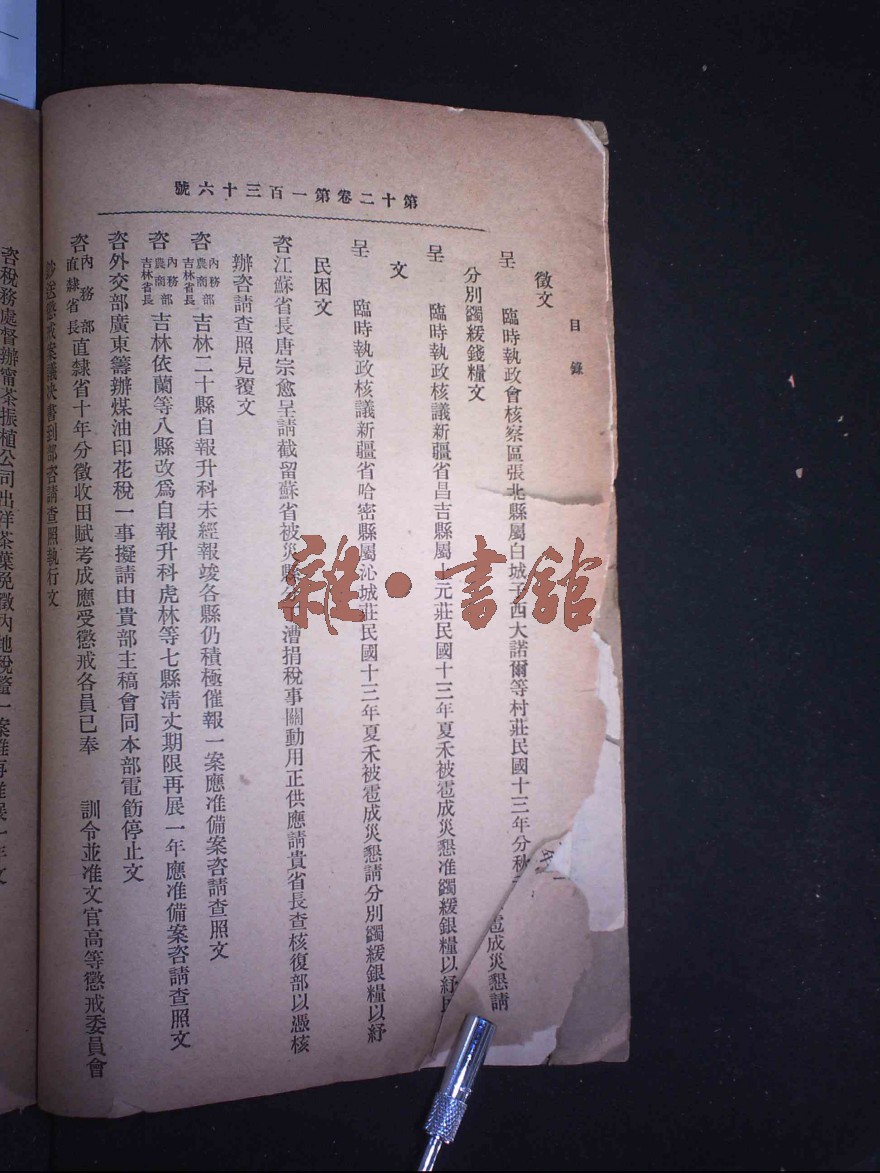 第十二卷第一百三十六號
目錄
徵文
呈　臨時執政會核察區張北縣屬白城子西大諾爾等村莊民國十三年分秋　雹成災懇請
分別蠲緩錢糧文
呈　臨時執政核議新疆省昌吉縣屬上元莊民國十三年夏禾被雹成災懇准蠲緩銀糧以紓民
文
呈　臨時執政核議新疆省哈密縣屬沁城莊民國十三年夏禾被雹成災懇請分別蠲緩銀糧以紓
民困文
咨江蘇省長唐宗愈呈請截留蘇省被災縣　漕捐稅事關動用正供應請貴省長查核復部以憑核
辦咨請查照見覆文
咨內務部農商部吉林省長吉林二十縣自報升科未經報竣各縣仍積極催報一案應准備案咨請查照文
咨內務部農商部吉林省長吉林依蘭等八縣改爲自報升科虎林等七縣清丈期限再展一年應准備案咨請查照文
咨外交部廣東籌辦煤油印花稅一事擬請由貴部主稿會同本部電飭停止文
咨內務部直隸省長直隸省十年分徵收田賦考成應受懲戒各員已奉　訓令並准文官高等懲戒委員會
鈔送懲戒案議決書到部咨請查照執行文
咨稅務處督辦甯茶振植公司出洋茶葉免徵內地稅釐一案准再展一年文
雜·書館